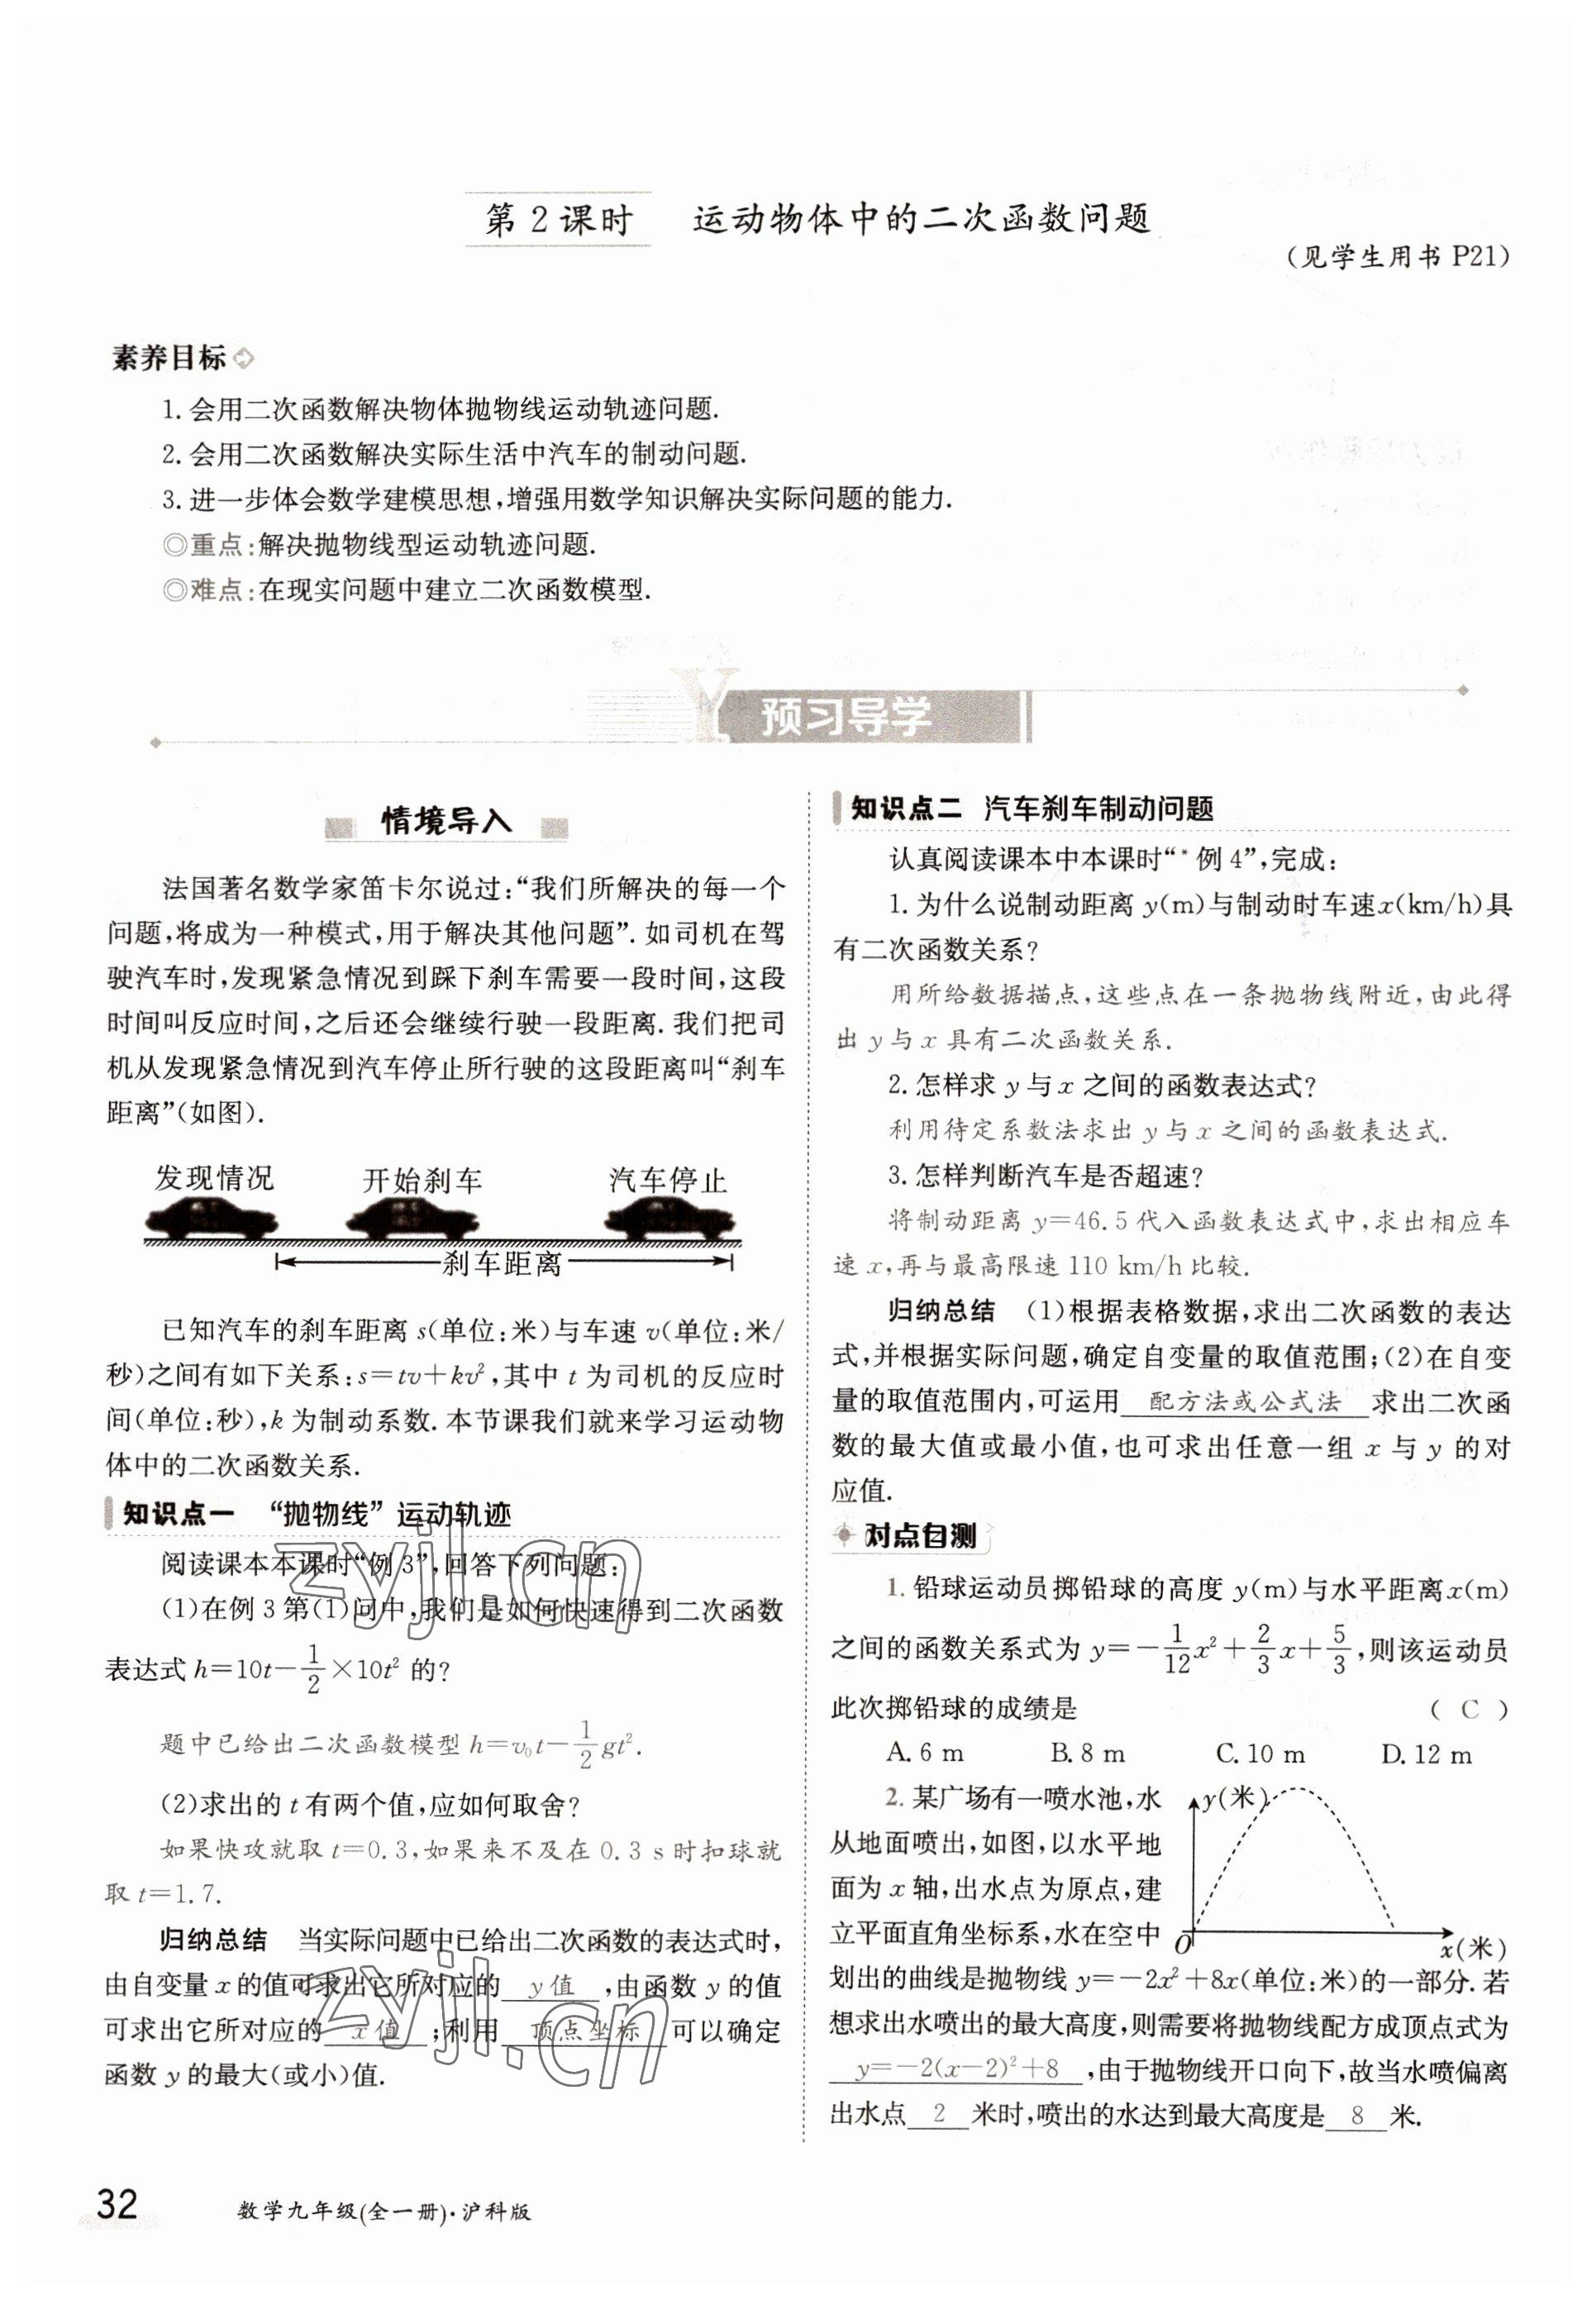 第 2 课时 运动物体中的二次函数问题
(见学生用书 P21)
素养目标
1. 会用二次函数解决物体抛物线运动轨迹问题.
2. 会用二次函数解决实际生活中汽车的制动问题.
3. 进一步体会数学建模思想,增强用数学知识解决实际问题的能力.
◎重点:解决抛物线型运动轨迹问题.
◎难点:在现实问题中建立二次函数模型.
Y 预习导学
情境导入
法国著名数学家笛卡尔说过:“我们所解决的每一个
问题,将成为一种模式,用于解决其他问题”. 如司机在驾
驶汽车时,发现紧急情况到踩下刹车需要一段时间,这段
时间叫反应时间,之后还会继续行驶一段距离. 我们把司
机从发现紧急情况到汽车停止所行驶的这段距离叫“刹车
距离”(如图).
发现情况 开始刹车 汽车停止
刹车距离
已知汽车的刹车距离 s(单位:米)与车速 v(单位:米/
秒)之间有如下关系:s=tv+kv²,其中 t 为司机的反应时
间(单位:秒),k 为制动系数. 本节课我们就来学习运动物
体中的二次函数关系.
知识点一 “抛物线”运动轨迹
阅读课本本课时“例 3”,回答下列问题:
(1)在例 3 第(1)问中,我们是如何快速得到二次函数
表达式 h=10t-1/2×10t² 的?
题中已给出二次函数模型 h=v₀t-1/2gt².
(2)求出的 t 有两个值,应如何取舍?
如果快攻就取 t=0.3,如果来不及在 0.3 s 时扣球就
取 t=1.7.
归纳总结 当实际问题中已给出二次函数的表达式时,
由自变量 x 的值可求出它所对应的 y 值 ,由函数 y 的值
可求出它所对应的 x 值 ;利用 顶点坐标 可以确定
函数 y 的最大(或小)值.
知识点二 汽车刹车制动问题
认真阅读课本中本课时“*例 4”,完成:
1. 为什么说制动距离 y(m)与制动时车速x(km/h)具
有二次函数关系?
用所给数据描点,这些点在一条抛物线附近,由此得
出 y 与 x 具有二次函数关系.
2. 怎样求 y 与 x 之间的函数表达式?
利用待定系数法求出 y 与 x 之间的函数表达式.
3. 怎样判断汽车是否超速?
将制动距离 y=46.5 代入函数表达式中,求出相应车
速 x,再与最高限速 110 km/h 比较.
归纳总结 (1)根据表格数据,求出二次函数的表达
式,并根据实际问题,确定自变量的取值范围;(2)在自变
量的取值范围内,可运用 配方法或公式法 求出二次函
数的最大值或最小值,也可求出任意一组 x 与 y 的对
应值.
对点自测
1. 铅球运动员掷铅球的高度 y(m)与水平距离x(m)
之间的函数关系式为 y=-1/12x²+2/3x+5/3,则该运动员
此次掷铅球的成绩是 ( C )
A. 6 m B. 8 m C. 10 m D. 12 m
2. 某广场有一喷水池,水
从地面喷出,如图,以水平地
面为 x 轴,出水点为原点,建
立平面直角坐标系,水在空中
y(米)
O
x(米)
划出的曲线是抛物线 y=-2x²+8x(单位:米)的一部分. 若
想求出水喷出的最大高度,则需要将抛物线配方成顶点式为
y=-2(x-2)²+8 ,由于抛物线开口向下,故当水喷偏离
出水点 2 米时,喷出的水达到最大高度是 8 米.
zyjl.cn
zyjl.cn
32 数学九年级(全一册)·沪科版